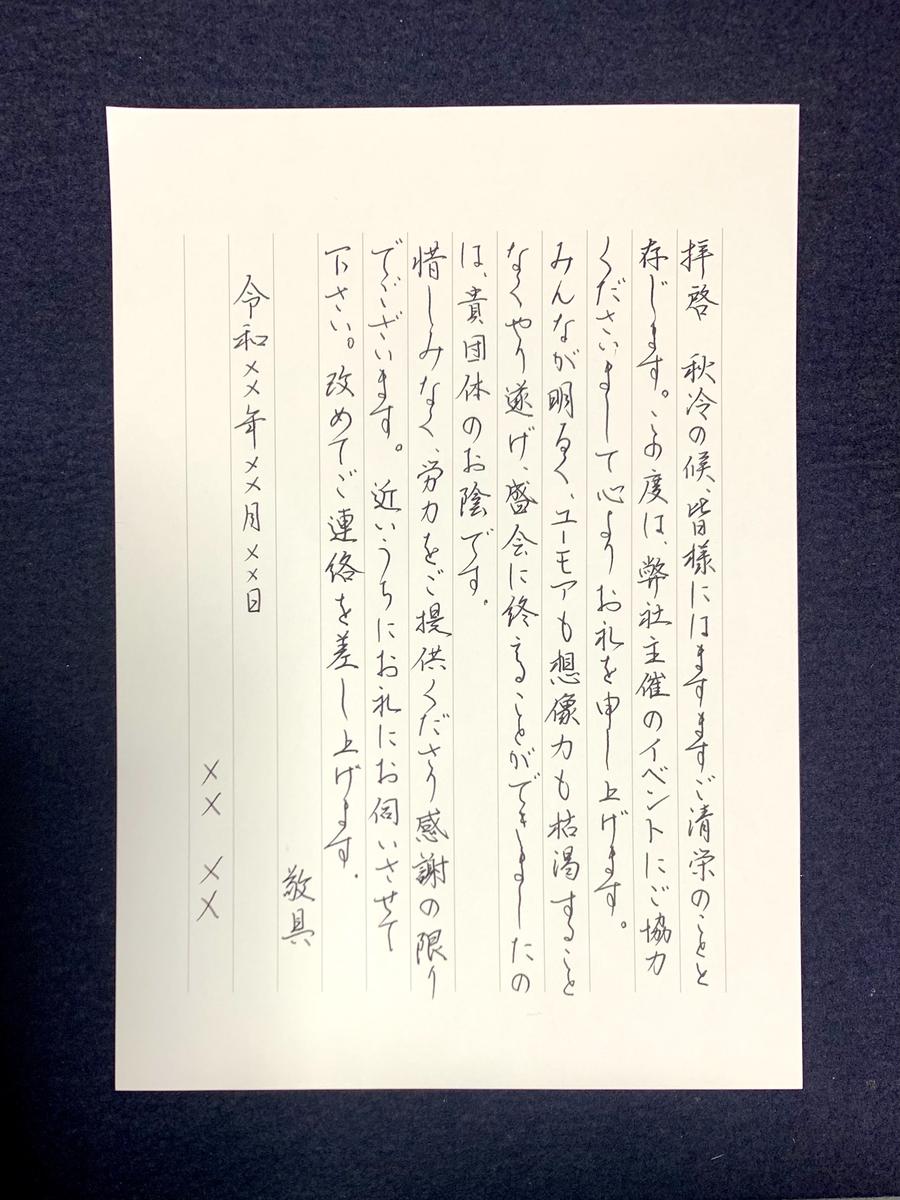 拝啓　秋冷の候、皆様にはますますご清栄のことと
存じます。この度は、弊社主催のイベントにご協力
くださいまして心よりお礼を申し上げます。
みんなが明るく、ユーモアも想像力も枯渇すること
なくやり遂げ、盛会に終えることができましたの
は、貴団体のお陰です。
惜しみなく、労力をご提供くださり感謝の限り
でございます。近いうちにお礼にお伺いさせて
下さい。改めてご連絡を差し上げます。
敬具
令和××年××月××日
××　××